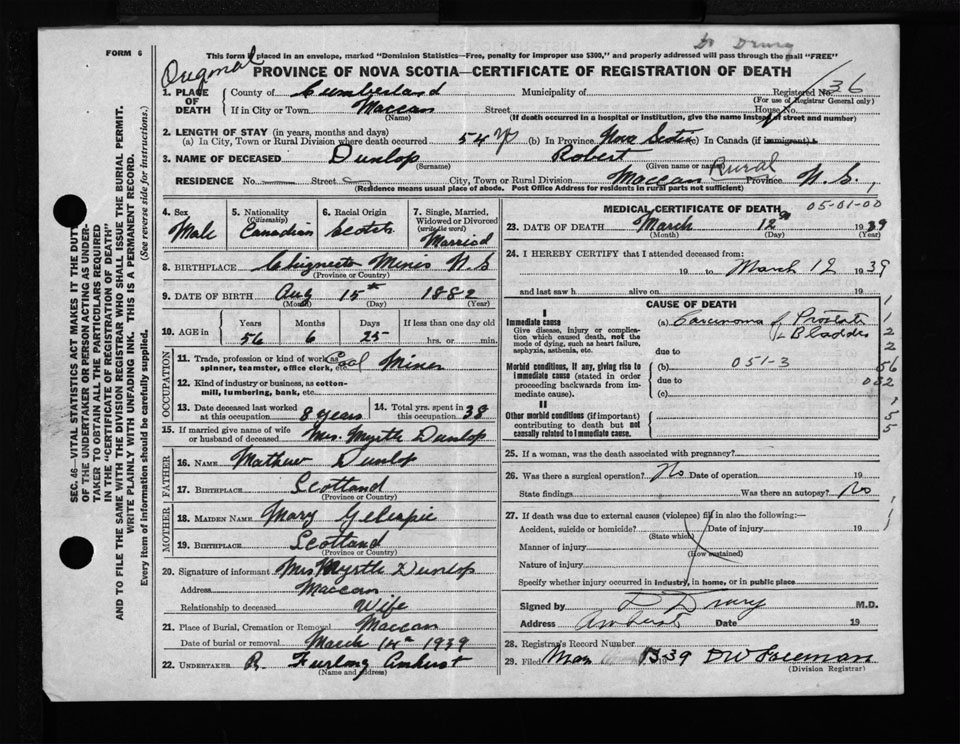 Dr Drury
FORM 6
This form if placed in an envelope, marked "Dominion Statistics—Free, penalty for improper use $300," and properly addressed will pass through the mail "FREE"
Original
PROVINCE OF NOVA SCOTIA—CERTIFICATE OF REGISTRATION OF DEATH
1. PLACE OF DEATH County of Cumberland Municipality of Registered No. 36
(For use of Registrar General only)
If in City or Town Maccan Street House No.
(Name) (If death occurred in a hospital or institution, give the name instead of street and number)
2. LENGTH OF STAY (in years, months and days)
(a) In City, Town or Rural Division where death occurred 54 y (b) In Province Nova Scotia (c) In Canada (if immigrant)
3. NAME OF DECEASED Dunlop Robert
(Surname) (Given name or names)
RESIDENCE No. Street City, Town or Rural Division Maccan Rural Province N.S.
(Residence means usual place of abode. Post Office Address for residents in rural parts not sufficient)
4. Sex Male
5. Nationality (Citizenship) Canadian
6. Racial Origin Scotch
7. Single, Married, Widowed or Divorced (write the word) Married
8. BIRTHPLACE Chignecto Mines N.S
(Province or Country)
9. DATE OF BIRTH Aug 15th 1882
(Month) (Day) (Year)
10. AGE in Years Months Days If less than one day old
56 6 25 hrs. or min.
OCCUPATION
11. Trade, profession or kind of work as spinner, teamster, office clerk, etc. Coal Miner
12. Kind of industry or business, as cotton-mill, lumbering, bank, etc.
13. Date deceased last worked at this occupation 8 years
14. Total yrs. spent in this occupation 38
15. If married give name of wife or husband of deceased Mrs. Myrtle Dunlop
FATHER
16. NAME Mathew Dunlop
17. BIRTHPLACE Scotland
(Province or Country)
MOTHER
18. MAIDEN NAME Mary Gelespie
19. BIRTHPLACE Scotland
(Province or Country)
20. Signature of informant Mrs Myrtle Dunlop
Address Maccan
Relationship to deceased Wife
21. Place of Burial, Cremation or Removal Maccan
Date of burial or removal March 14th 1939
22. UNDERTAKER R. Furlong Amherst
(Name and address)
MEDICAL CERTIFICATE OF DEATH
05-01-00
23. DATE OF DEATH March 12 1939
(Month) (Day) (Year)
24. I HEREBY CERTIFY that I attended deceased from:
19 to March 12 1939
and last saw h alive on 19
CAUSE OF DEATH
I
Immediate cause
Give disease, injury or complication which caused death, not the mode of dying, such as heart failure, asphyxia, asthenia, etc.
(a) Carcinoma of Prostate
& Bladder
due to
Morbid conditions, if any, giving rise to immediate cause (stated in order proceeding backwards from immediate cause).
(b) 051-3
due to
(c)
II
Other morbid conditions (if important) contributing to death but not causally related to immediate cause.
1
1
2
2
56
082
1
5
5
25. If a woman, was the death associated with pregnancy?
26. Was there a surgical operation? No Date of operation 19
State findings Was there an autopsy? No
27. If death was due to external causes (violence) fill in also the following:—
Accident, suicide or homicide? Date of injury 19
(State which)
Manner of injury
(How sustained)
Nature of injury
Specify whether injury occurred in industry, in home, or in public place
Signed by D Drury M.D.
Address Amherst Date 19
28. Registrar's Record Number
29. Filed Mar 13-39 DW Freeman
(Division Registrar)
SEC. 46—VITAL STATISTICS ACT MAKES IT THE DUTY OF THE UNDERTAKER OR PERSON ACTING AS UNDERTAKER TO OBTAIN ALL THE PARTICULARS REQUIRED IN THE "CERTIFICATE OF REGISTRATION OF DEATH" AND TO FILE THE SAME WITH THE DIVISION REGISTRAR WHO SHALL ISSUE THE BURIAL PERMIT.
WRITE PLAINLY WITH UNFADING INK. THIS IS A PERMANENT RECORD.
Every item of information should be carefully supplied. (See reverse side for instructions.)